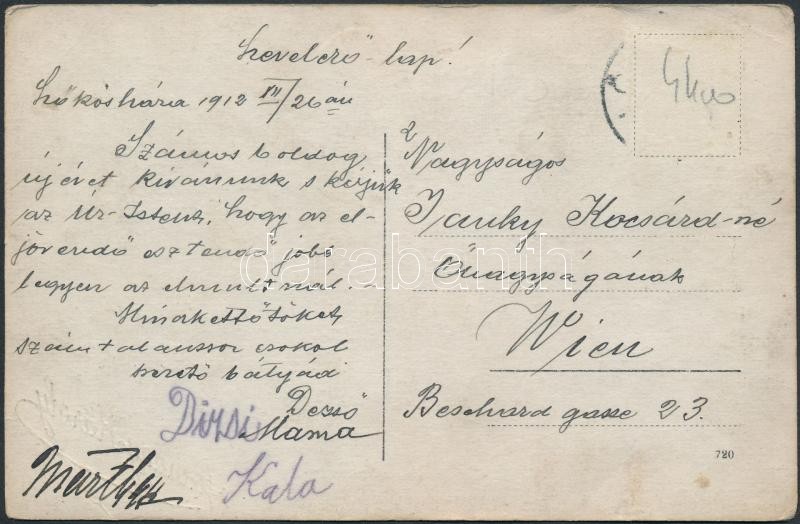 Levelező-lap!
Lőkösháza 1912 XII/26 án
Számos boldog
új évet kivánunk s kérjük
az Ur-Istent, hogy az el-
jövendő esztendő jobb
legyen az elmultnál.-
Mindkettőtöket
számtalanszor csokol
szerető bátyád
Dezső
Mama
Dizsi
Kato
Nagyságos
Janky Kocsárd-né
Őnagyságának
Wien
Beschard gasse 23.
720
darabanth